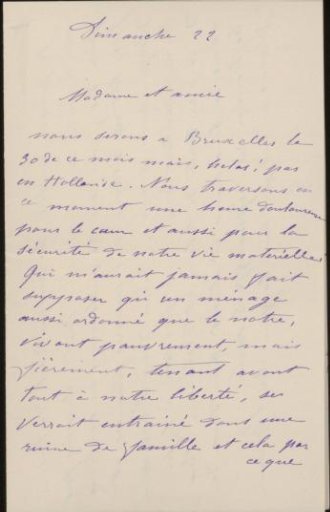 Dimanche 22
Madame et amie
nous serons à Bruxelles le
30 de ce mois mais, hélas! pas
en Hollande. Nous traversons en
ce moment une heure douloureuse
pour le cœur et aussi pour la
sécurité de notre vie matérielle.
Qui m'aurait jamais fait
supposer qu'un ménage
aussi ordonné que le notre,
vivant pauvrement, mais
fièrement, tenant avant
tout à notre liberté, se
verrait entrainé dans une
ruine de famille et cela par
ce que